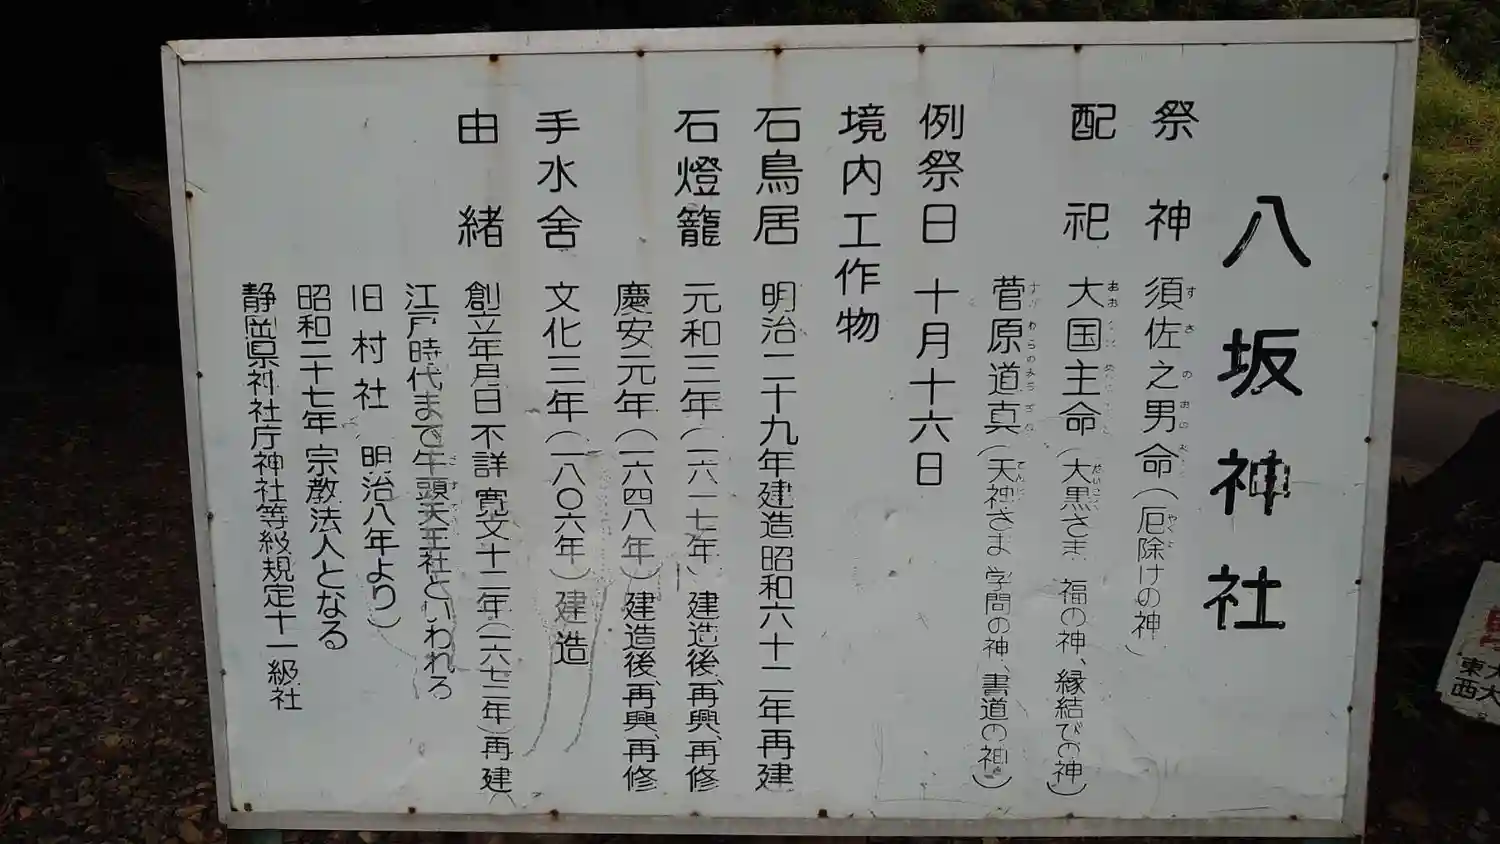 八坂神社
祭神 須佐之男命(厄除けの神)
配祀 大国主命(大黒さま 福の神、縁結びの神)
菅原道真(天神さま 学問の神、書道の神)
例祭日 十月十六日
境内工作物
石鳥居 明治二十九年建造 昭和六十二年再建
石燈籠 元和三年(一六一七年)建造後、再興、再修
慶安元年(一六四八年)建造後、再興、再修
手水舍 文化三年(一八〇六年)建造
由緒 創立年月日不詳 寛文十二年(一六七二年)再建
江戸時代まで牛頭天王社といわれる
旧村社 明治八年より)
昭和二十七年 宗教法人となる
静岡県神社庁神社等級規定十一級社
東大
西大